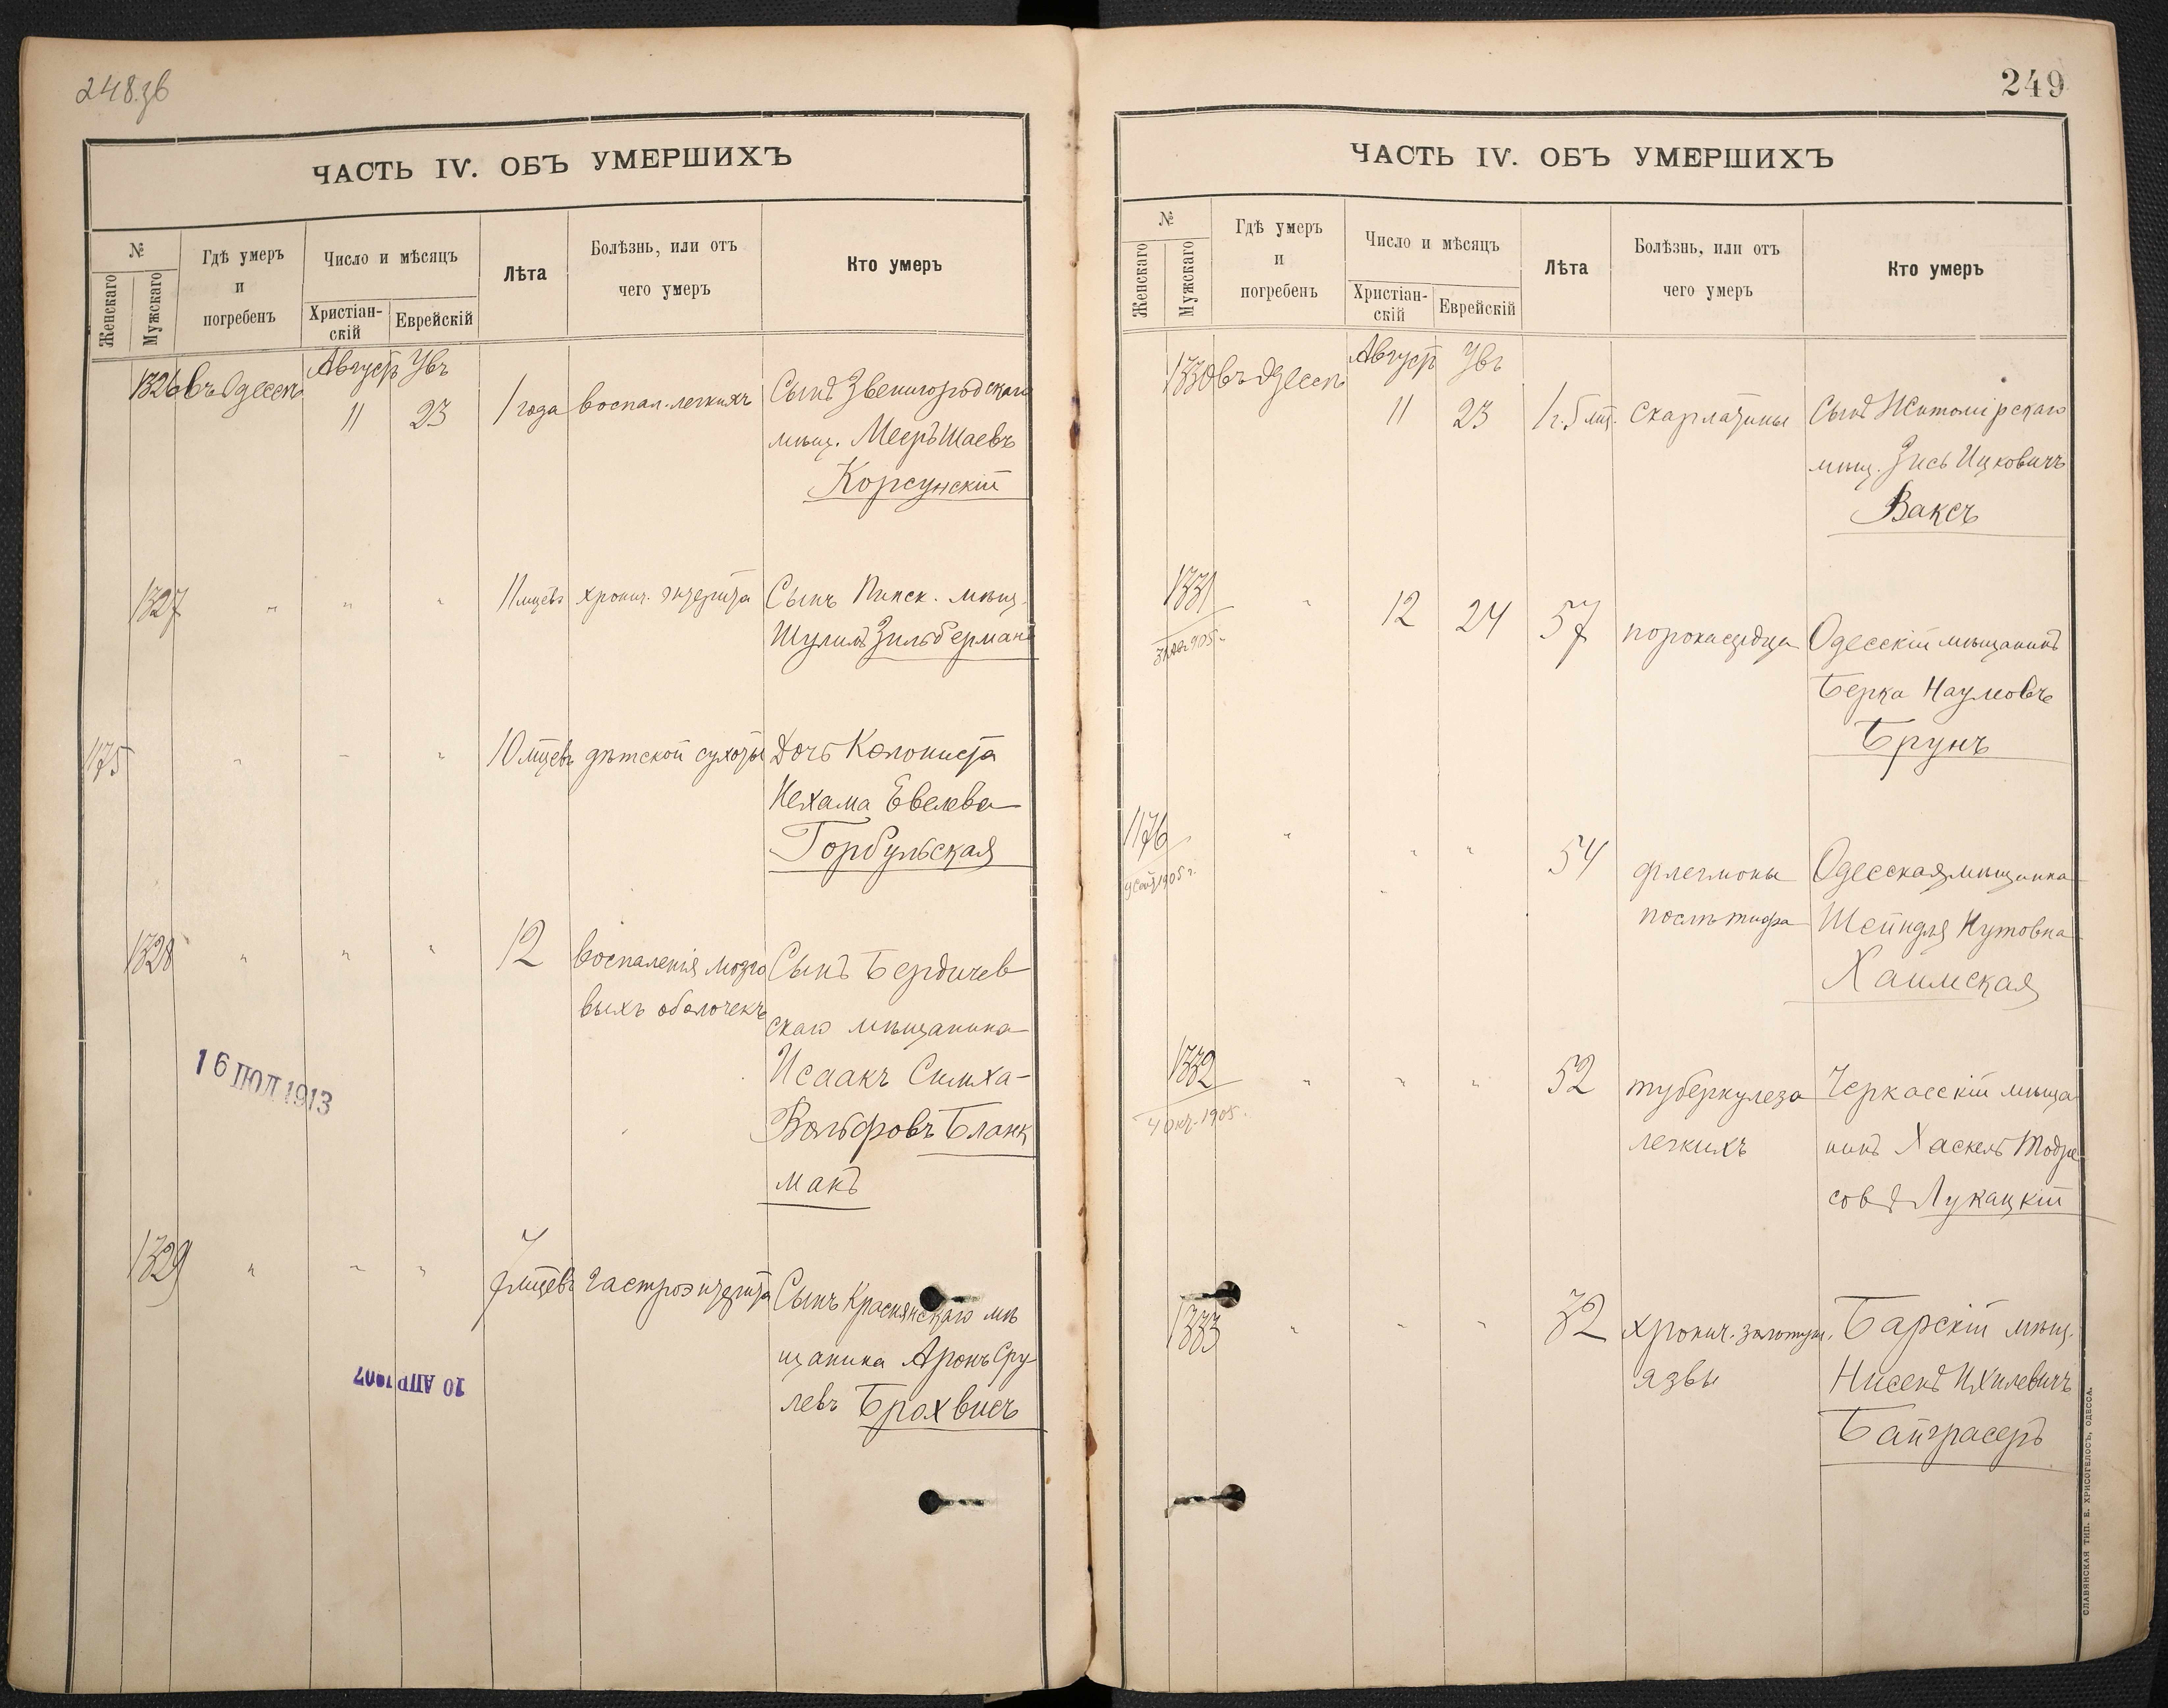 248 зв
ЧАСТЬ IV. ОБЪ УМЕРШИХЪ
№
Женскаго
Мужскаго
Гдѣ умеръ
и
погребенъ
Число и мѣсяцъ
Христіан-
скій
Еврейскій
Лѣта
Болѣзнь, или отъ
чего умеръ
Кто умеръ
Август Увъ
1326 въ Одессѣ 11 23 1 года воспал. легкихъ Сынъ Звенигородскаго
мѣщ. Мееръ Шаевъ
Корсунскій
1327 " " " 11 мцевъ хронич. энтерита Сынъ Пинск. мѣщ.
Шулимъ Зильберманъ
1175 " " " 10 мцевъ дѣтской сухоты Дочь Колониста
Нехама Евелева
Горбульская
1328 " " " 12 воспаленія мозго Сынъ Бердичев
выхъ оболочекъ скаго мѣщанина
Исаакъ Симха-
Вольфовъ Бланк
манъ
16 ІЮЛ 1913
1329 " " " 7 мцевъ гастроэнтерита Сынъ Краснянскаго мѣ
щанина Аронъ Сру
левъ Брохвисъ
10 АПР 1907
249
ЧАСТЬ IV. ОБЪ УМЕРШИХЪ
№
Женскаго
Мужскаго
Гдѣ умеръ
и
погребенъ
Число и мѣсяцъ
Христіан-
скій
Еврейскій
Лѣта
Болѣзнь, или отъ
чего умеръ
Кто умеръ
Август Увъ
1330 въ Одессѣ 11 23 1 г. 5 мц. скарлатины Сынъ Житомірскаго
мѣщ. Зись Ицковичъ
Ваксъ
1331 " 12 24 57 порока сердца Одесскій мѣщанинъ
1905 г.
Берка Наумовъ
Брунъ
1176 " " " 54 флегмоны Одесская мѣщанка
9 Сент 1905 г.
послѣ тифа Шейндля Нутовна
Хаимская
1332 " " " 52 туберкулеза Черкасскій мѣща
4 Окт. 1905.
легкихъ нинъ Хаскель Тодре
совъ Лукацкій
1333 " " " 32 хронич. золотуш. Барскій мѣщ.
язвы Нисенъ Ихилевичъ
Байтрасеръ
СЛАВЯНСКАЯ ТИП. Е. ХРИСОГЕЛОСЪ, ОДЕССА.